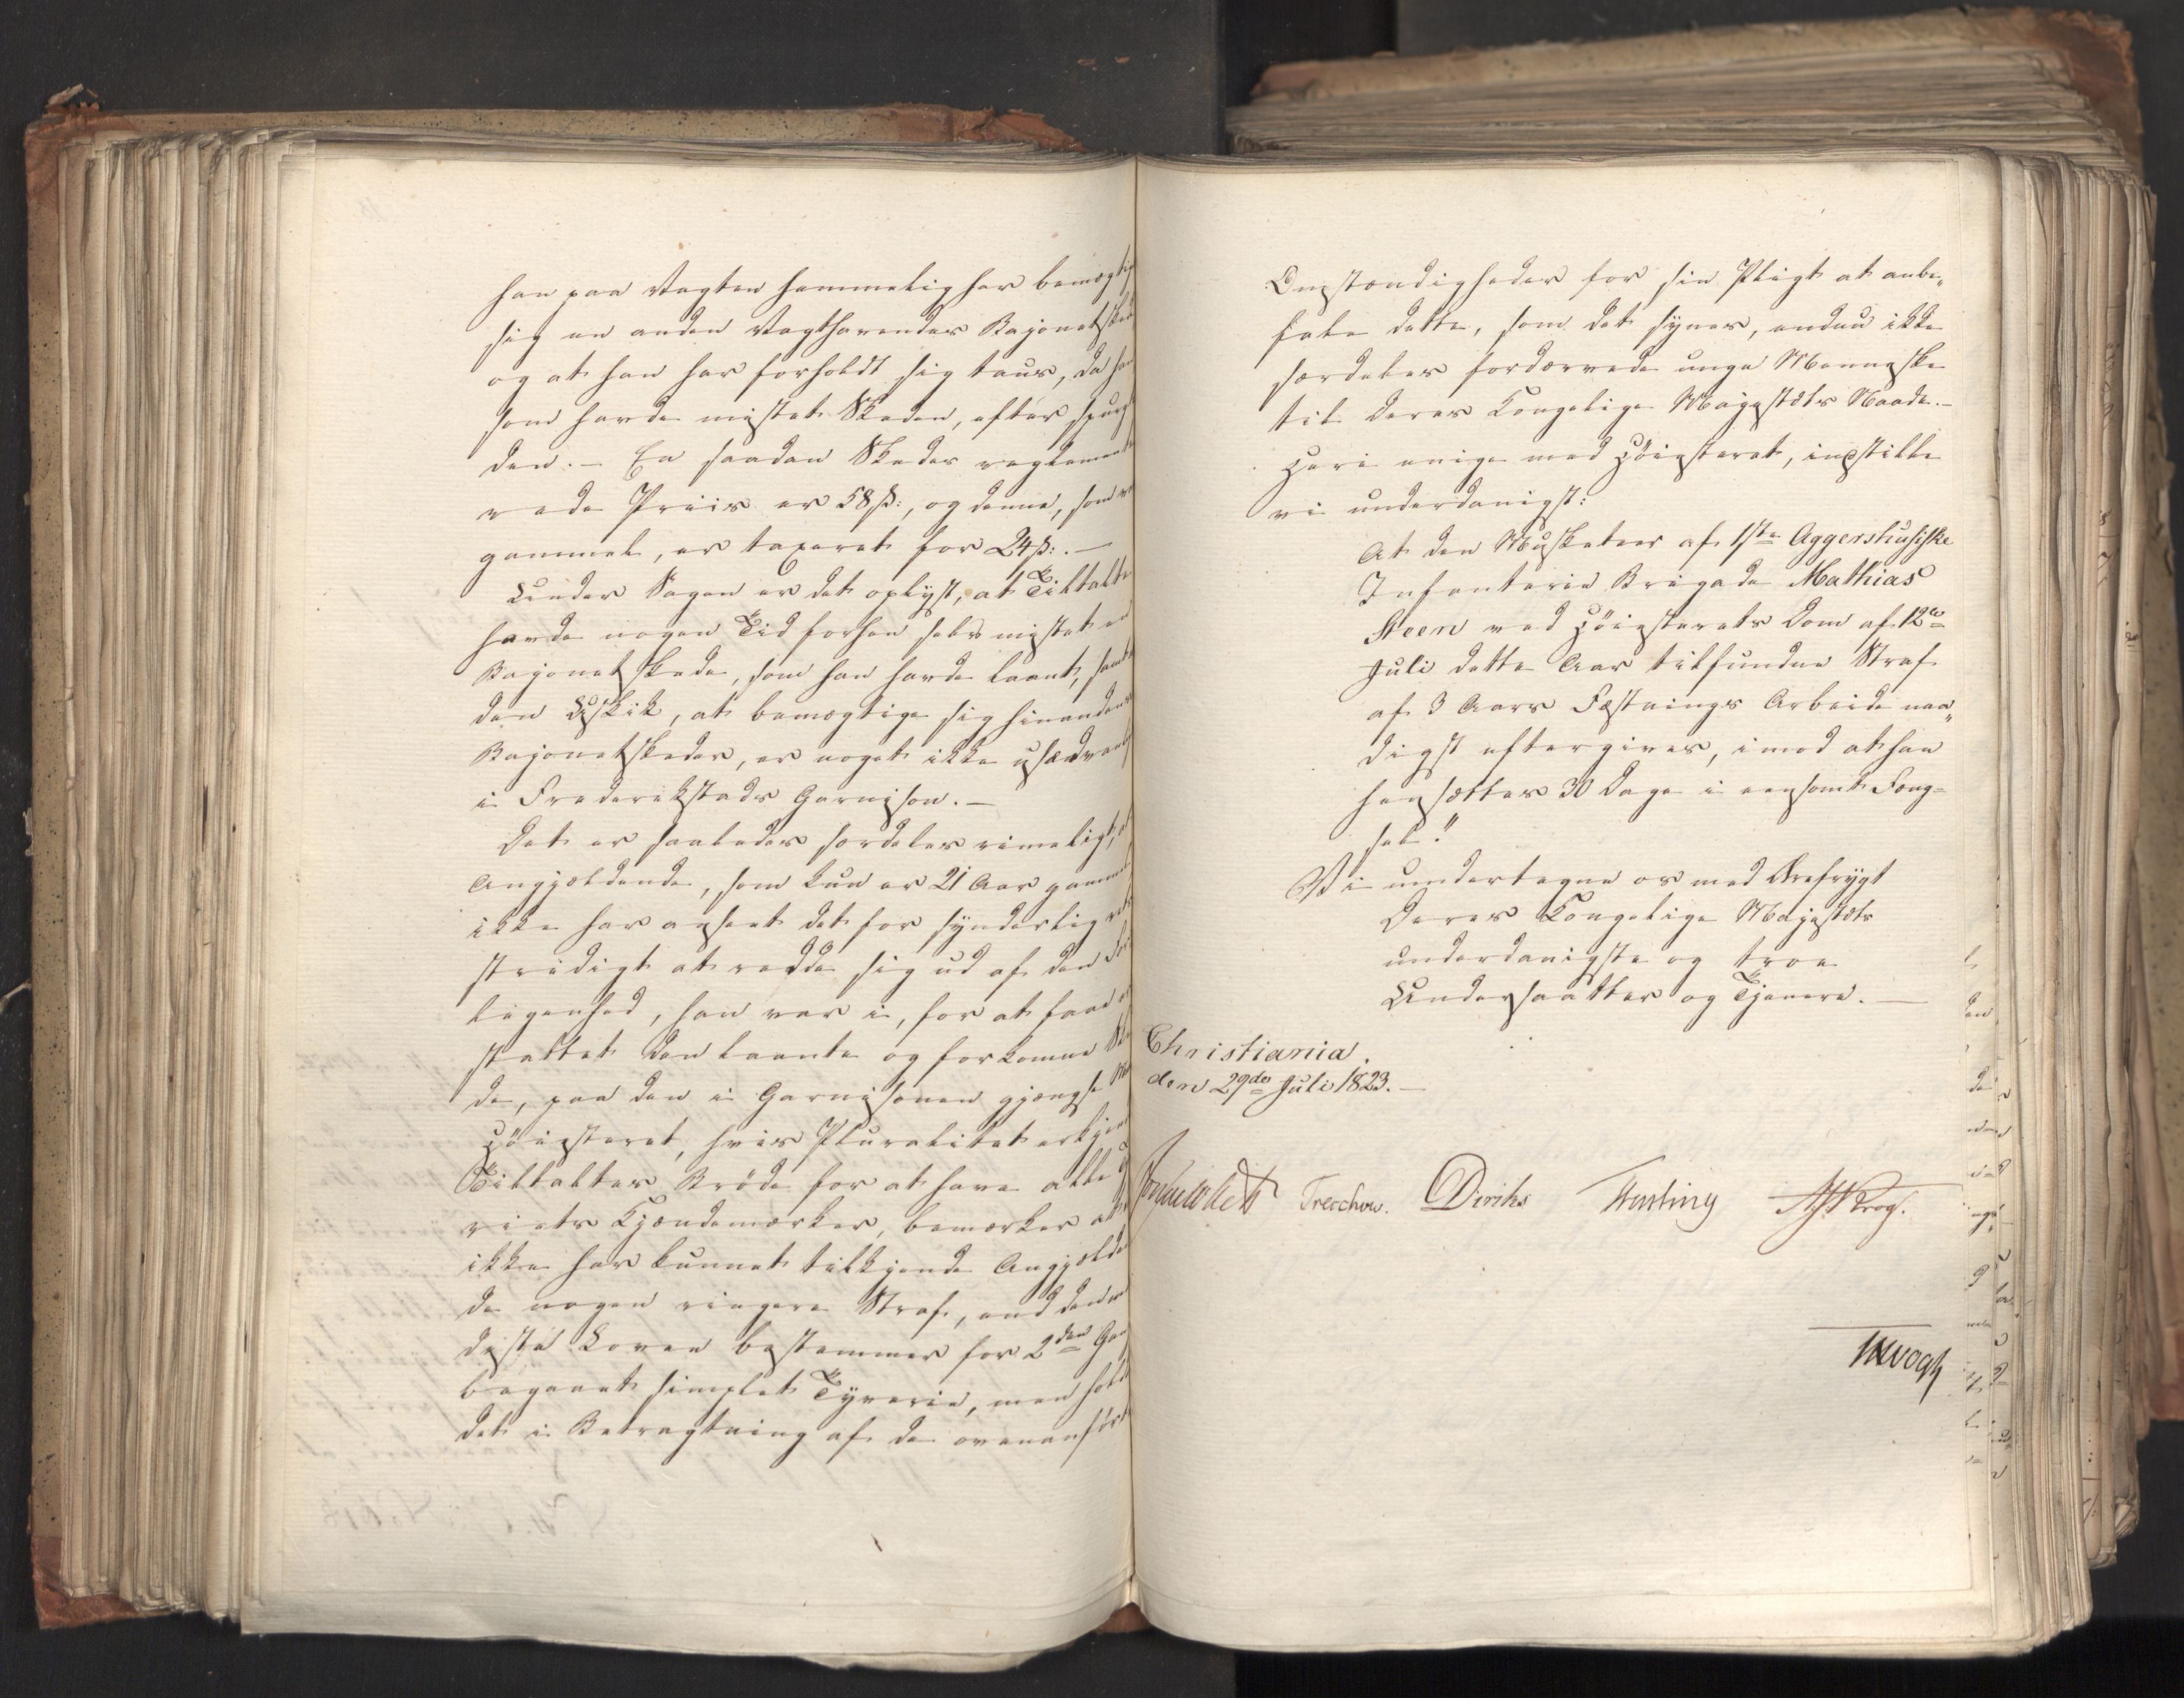 han paa Vagten hemmelig har bemægtig
sig en anden Vagthavendes Bajonetsked
og at han har forholdt sig taus, da han
som havde mistet Skeden, efterspurgte
den. — En saadan Skedes reglemente-
rede Priis er 58 ß:, og denne, som var
gammel, er taxeret for 24 ß:. —
Under Sagen er det oplyst, at Tiltalte
havde nogen Tid forhen selv mistet en
Bajonetskede, som han havde laant, samt
den Uskik, at bemægtige sig hinandens
Bajonetskeder, er noget ikke usædvanl
i Frederikstads Garnison. —
Det er saaledes særdeles rimeligt, at
Angjældende, som kun er 21 Aar gammel
ikke har anseet det for synderlig ret-
stridigt at redde sig ud af den For-
legenhed, han var i, for at faae er-
stattet den laante og forkomne Ske-
de, paa den i Garnisonen gjængse Maade
Høiesteret, hvis Pluralitet erkjen
Tiltaltes Brøde for at have alle Ty-
veriets Kjendemærker, bemærker at
ikke har kunnet tilkjende Angjælden-
de nogen ringere Straf, end den
diste Loven bestemmer for 2den Gang
begaaet simpelt Tyverie, men hold
det i Betragtning af de ovenanført
Omstændigheder for sin Pligt at anbe„
fale dette, som det synes, endnu ikke
særdeles fordærvede unge Menneske
til Deres Kongelige Majestæts Naade. —
Heri enige med Høiesteret, indstille
vi underdanigst:
At den Musketeer af 1ste Aggershusiske
Infanterie Brigade Mathias
Steen ved Høiesterets Dom af 12te
Juli dette Aar tilfundne Straf
af 3 Aars Fæstnings Arbeide naa„
digst eftergives, imod at han
hensættes 30 Dage i eensomt Fæng=
sel."
Vi undertegne os med Ærefrygt
Deres Kongelige Majestæts
underdanigste og troe
Undersaatter og Tjenere. —
Christiania.
den 29de Juli 1823. —
Treschow. Diriks Hasting Krog.
Vogt